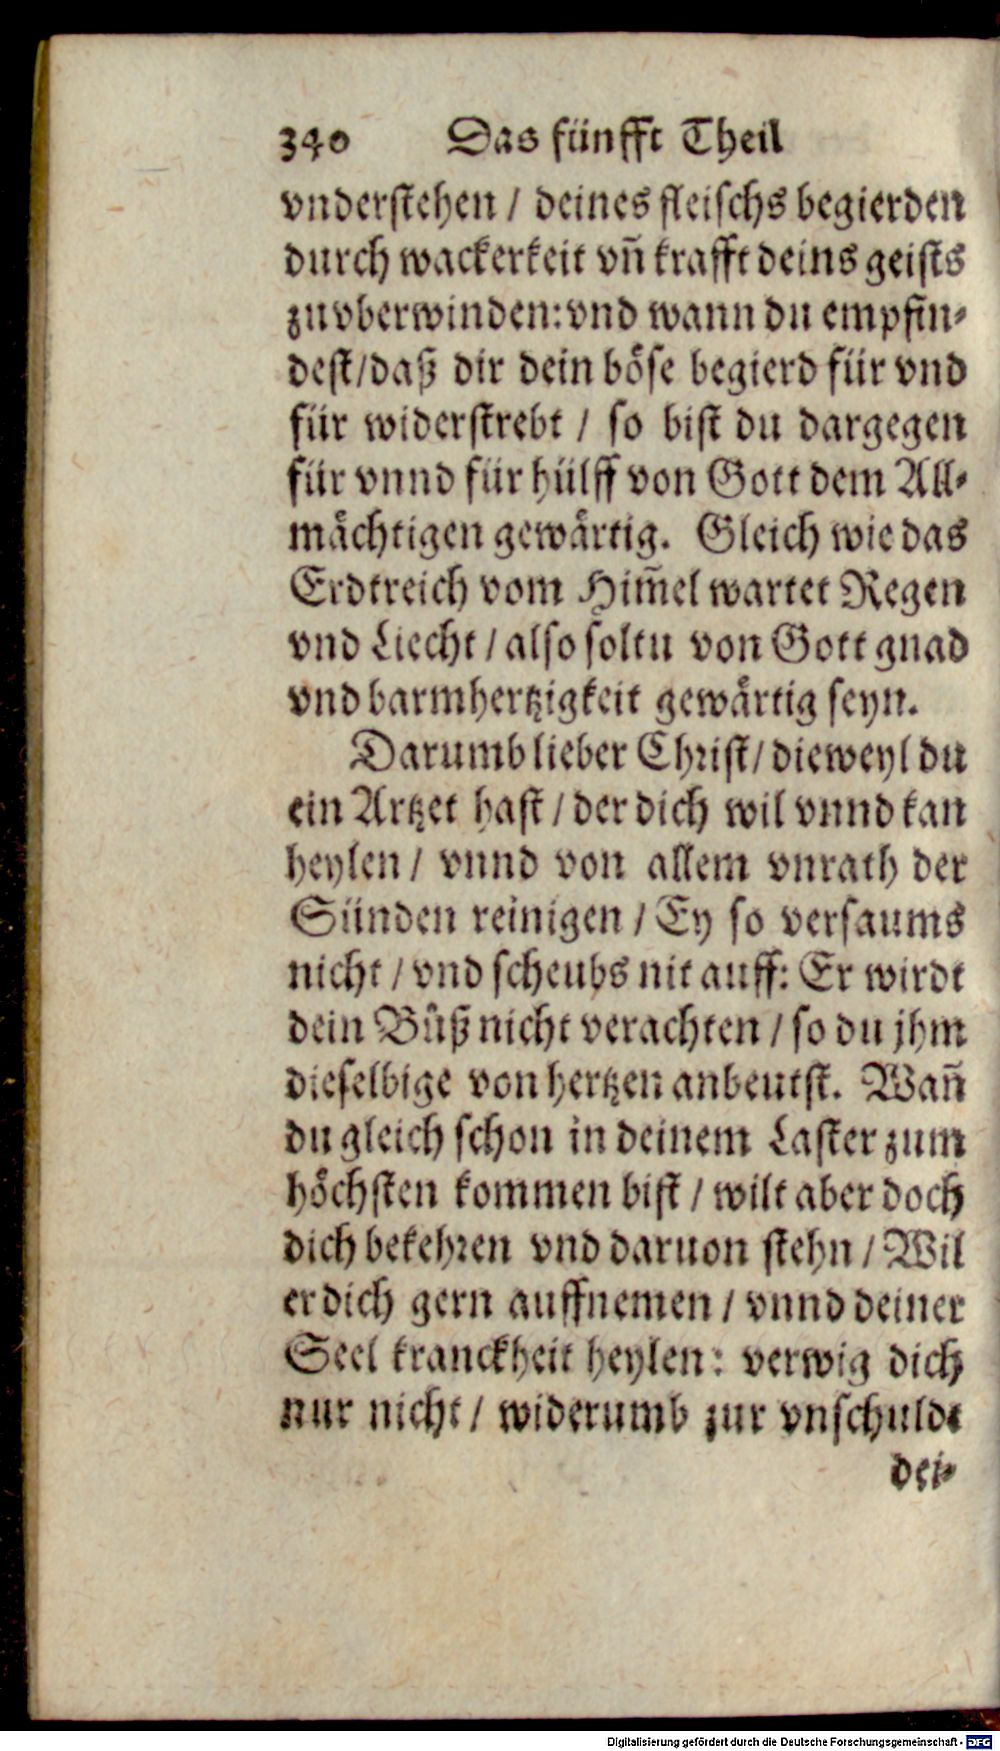 340 Das fünfft Theil
vnderstehen / deines fleischs begierden
durch wackerkeit vn̄ krafft deins geists
zu vberwinden: vnd wann du empfin-
dest/daß dir dein böse begierd für vnd
für widerstrebt / so bist du dargegen
für vnnd für hülff von Gott dem All-
mächtigen gewärtig. Gleich wie das
Erdtreich vom Him̄el wartet Regen
vnd Liecht / also soltu von Gott gnad
vnd barmhertzigkeit gewärtig seyn.
Darumb lieber Christ/ dieweyl du
ein Artzet hast / der dich wil vnnd kan
heylen / vnnd von allem vnrath der
Sünden reinigen / Ey so versaums
nicht / vnd scheubs nit auff: Er wirdt
dein Bůß nicht verachten / so du jhm
dieselbige von hertzen anbeutst. Wan̄
du gleich schon in deinem Laster zum
höchsten kommen bist / wilt aber doch
dich bekehren vnd daruon stehn / Wil
er dich gern auffnemen / vnnd deiner
Seel kranckheit heylen: verwig dich
nur nicht / widerumb zur vnschuldt
dei-
Digitalisierung gefördert durch die Deutsche Forschungsgemeinschaft - DFG